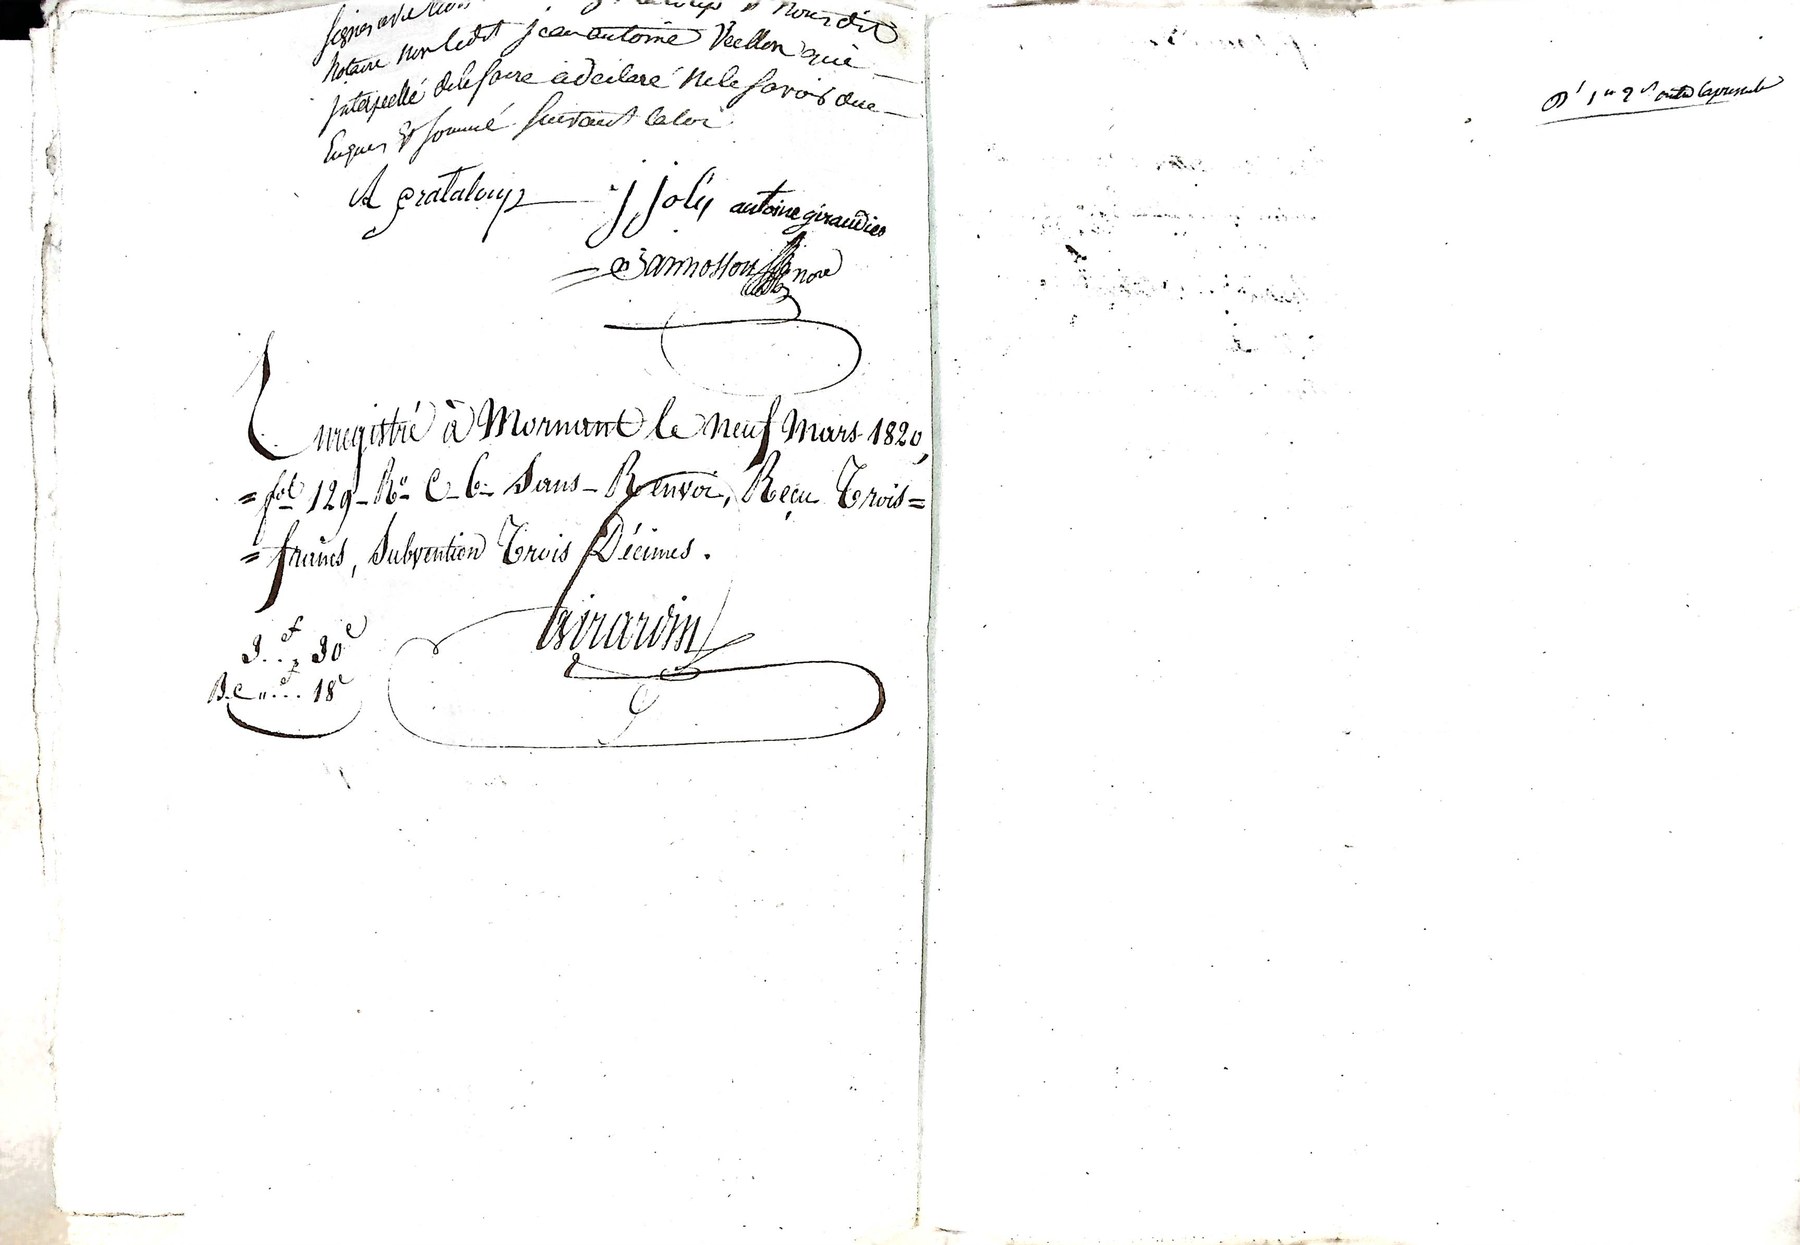 notaire non ledit jean antoine Veillon qui
Interpellé de le faire a déclaré ne le savoir due
Enquis & sommé suivant la loi
A grataloup j joly antoine giraudier
nore
Enregistré à Mornant le neuf Mars 1820,
= fol 129 - Ro - C - 6 - Sans - Renvoi, Reçu Trois =
= francs, Subvention Trois Décimes.
Girardin
3 f. 30 c
18 c